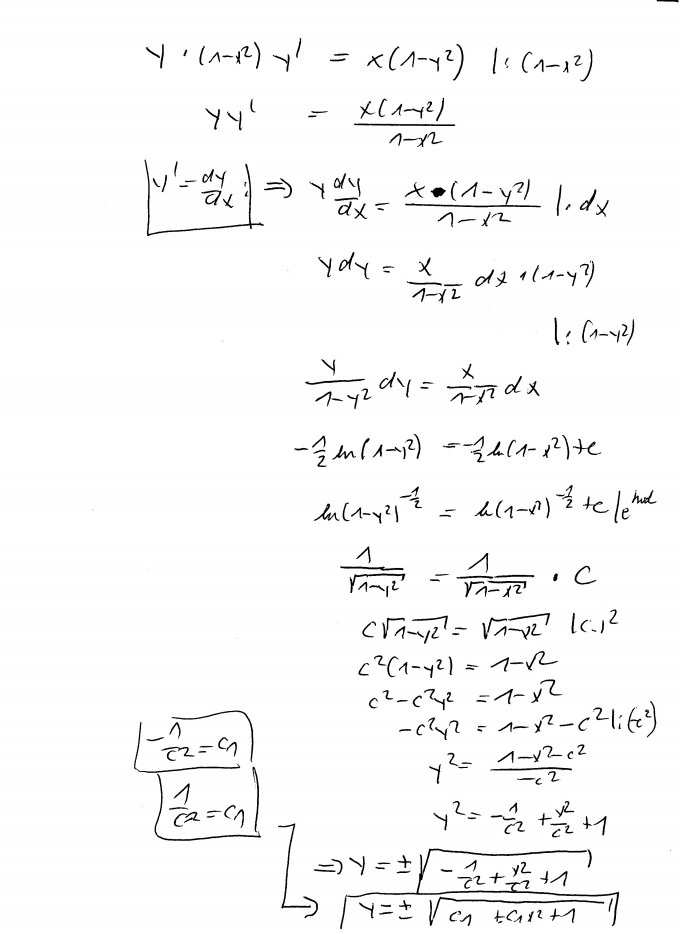 y · (1-x²) y' = x(1-y²) |: (1-x²)
yy' = x(1-y²)/1-x²
y' = dy/dx : ⇒ y dy/dx = x·(1-y²)/1-x² |· dx
y dy = x/1-x² dx · (1-y²)
|: (1-y²)
y/1-y² dy = x/1-x² dx
-1/2 ln(1-y²) = -1/2 ln(1-x²)+c
ln(1-y²)^-1/2 = ln(1-x²)^-1/2 +c | e
1/√1-y² = 1/√1-x² · C
c√1-y² = √1-x² |(..)²
c²(1-y²) = 1-x²
c²-c²y² = 1-x²
-c²y² = 1-x²-c² |:(-c²)
-1/c2 = c1
y² = 1-x²-c²/-c²
1/c2 = c1
y² = -1/c2 + x²/c2 +1
⇒ y = ± √-1/c2 + x²/c2 +1
→ y = ± √c1 + c1x²+1